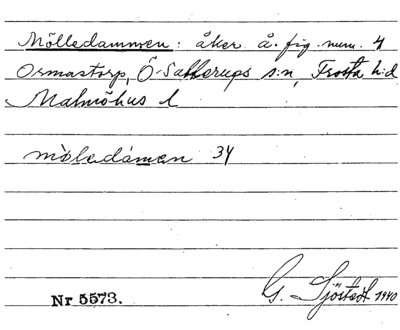 Mölledammen: åker å. fig. num. 4
Ormastorp, Ö. Sallerups s:n, Frosta h:d
Malmöhus l
möledamen 34
Nr 5573.
G. Sjöstedt 1940